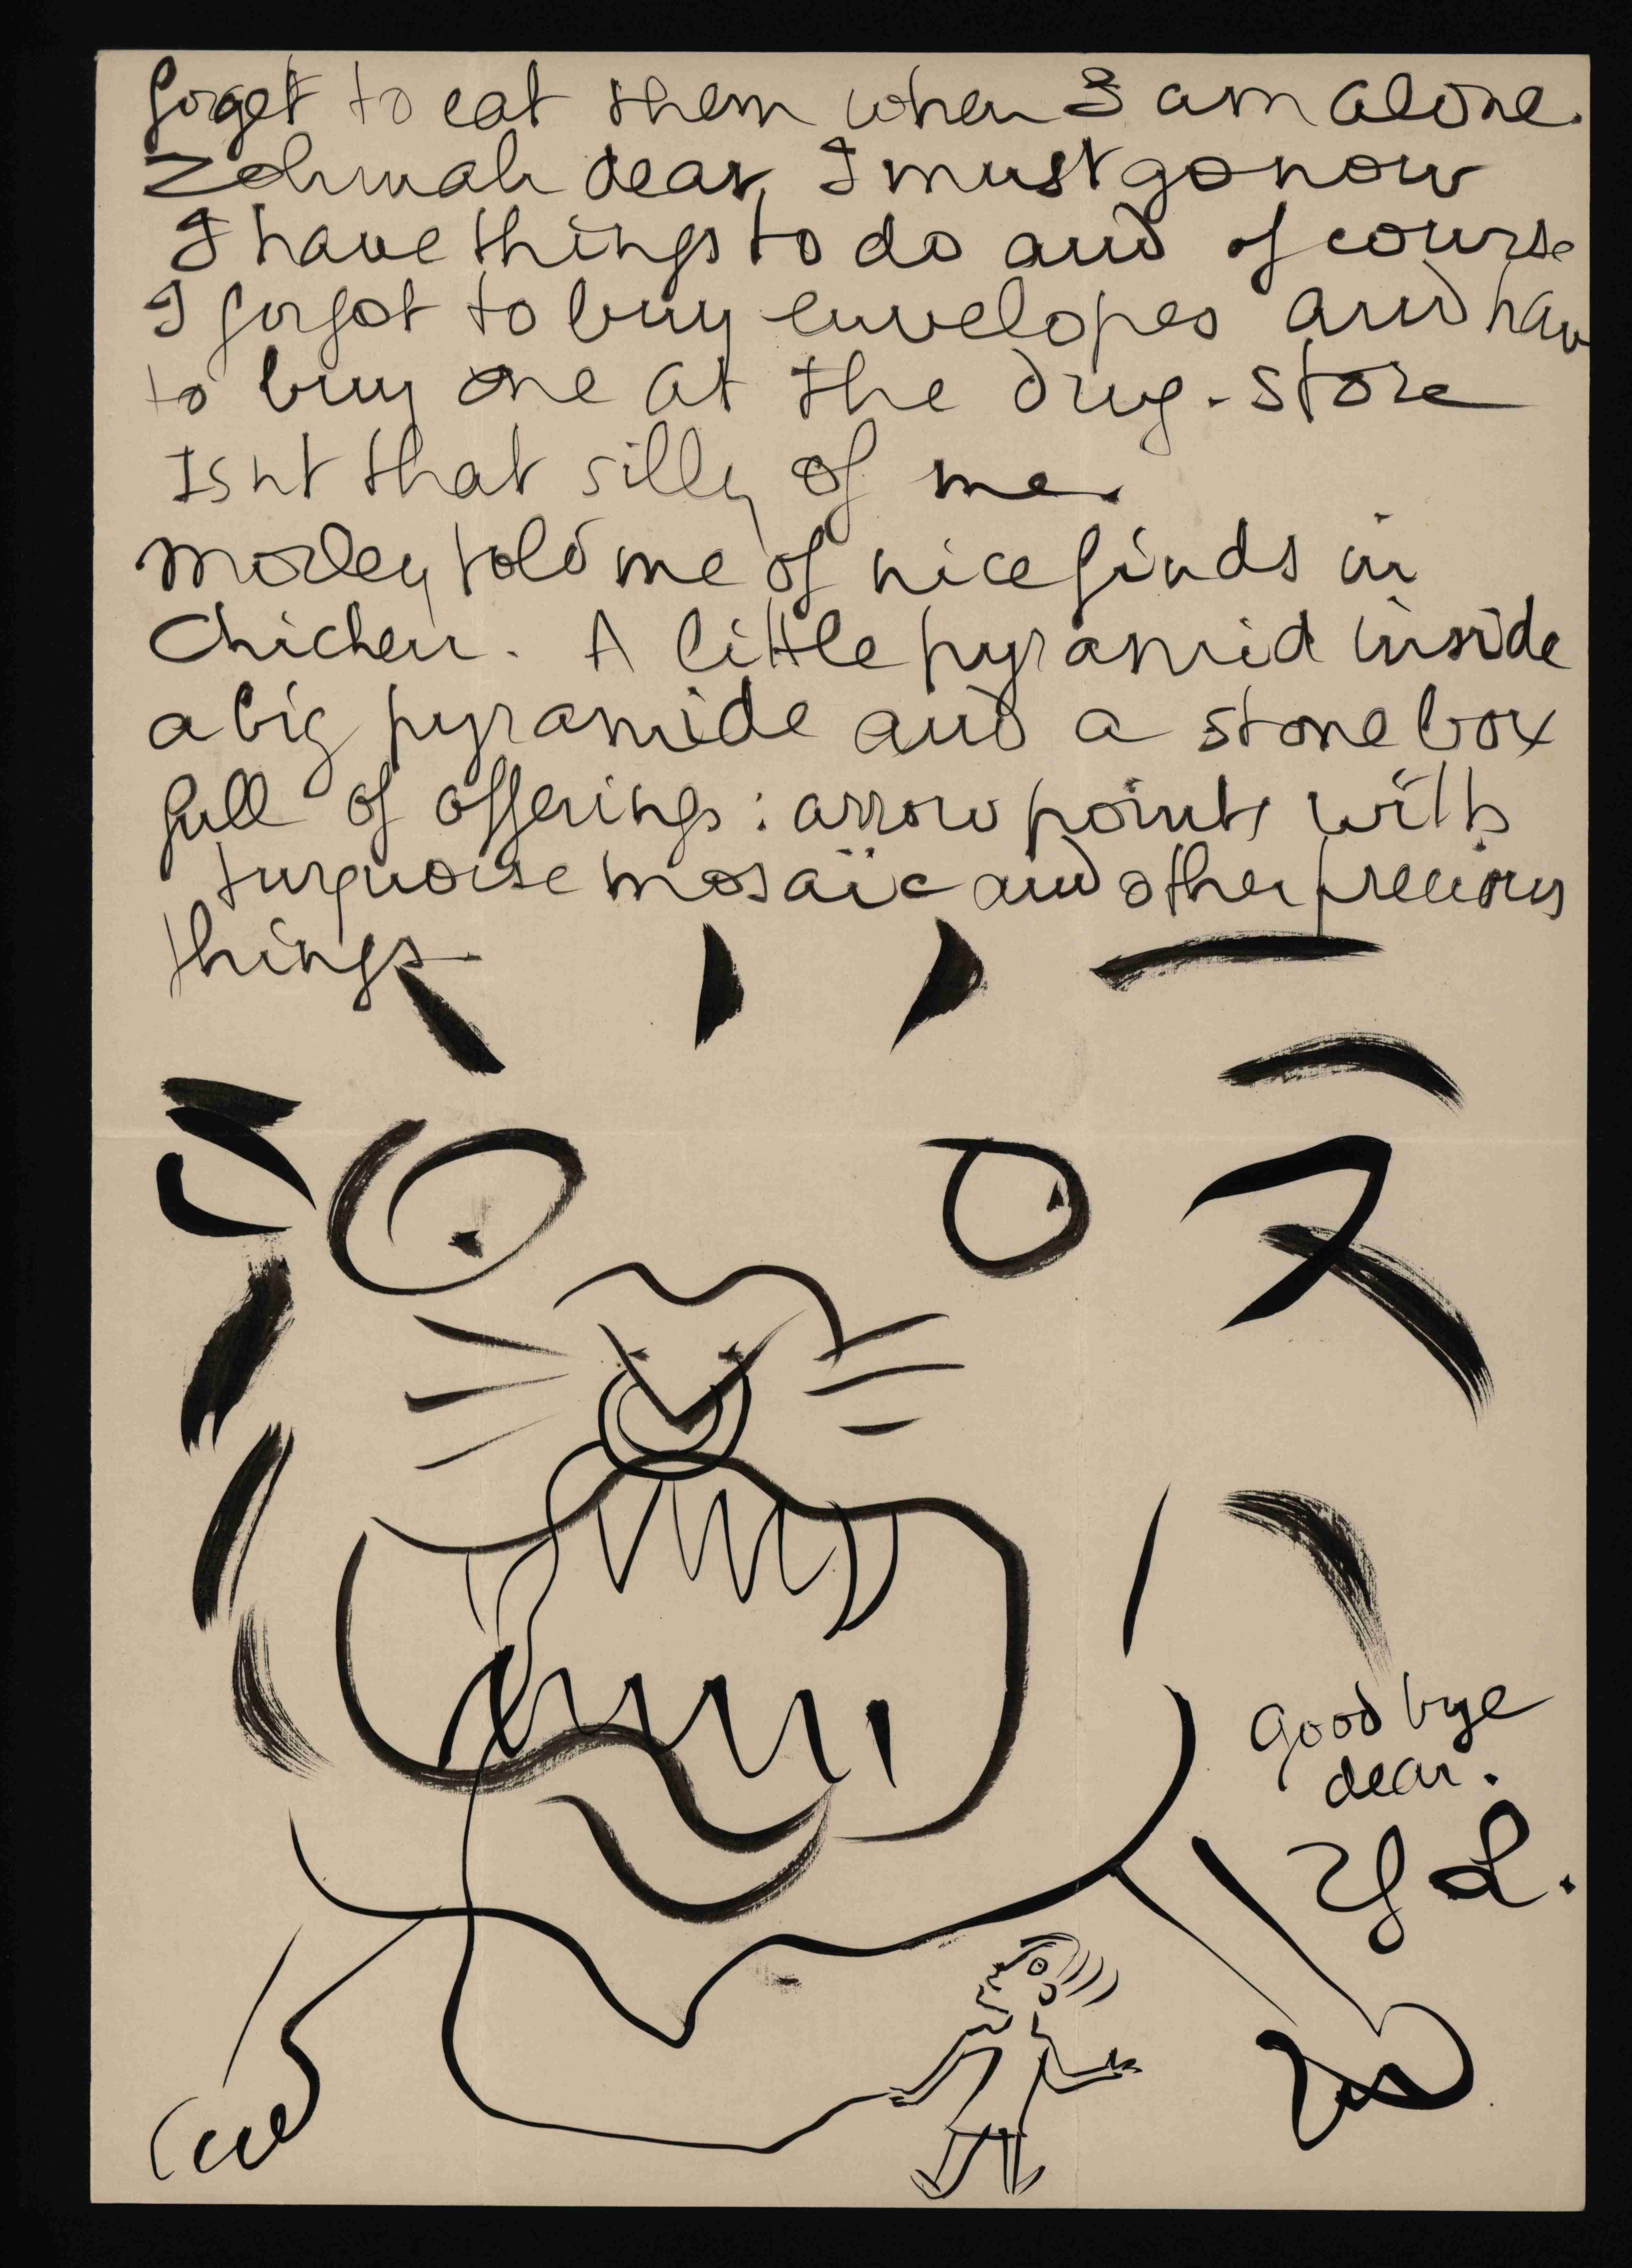 forget to eat them when I am alone.
Zohmah dear, I must go now
I have things to do and of course
I forgot to buy envelopes and hav
to buy one at the drug-store
Isnt that silly of me.
Morley told me of nice finds in
Chichen. A little pyramid inside
a big pyramide and a stone box
full of offerings: arrow points with
turquoise mosaïc and other precious
things.
Good bye
dear.